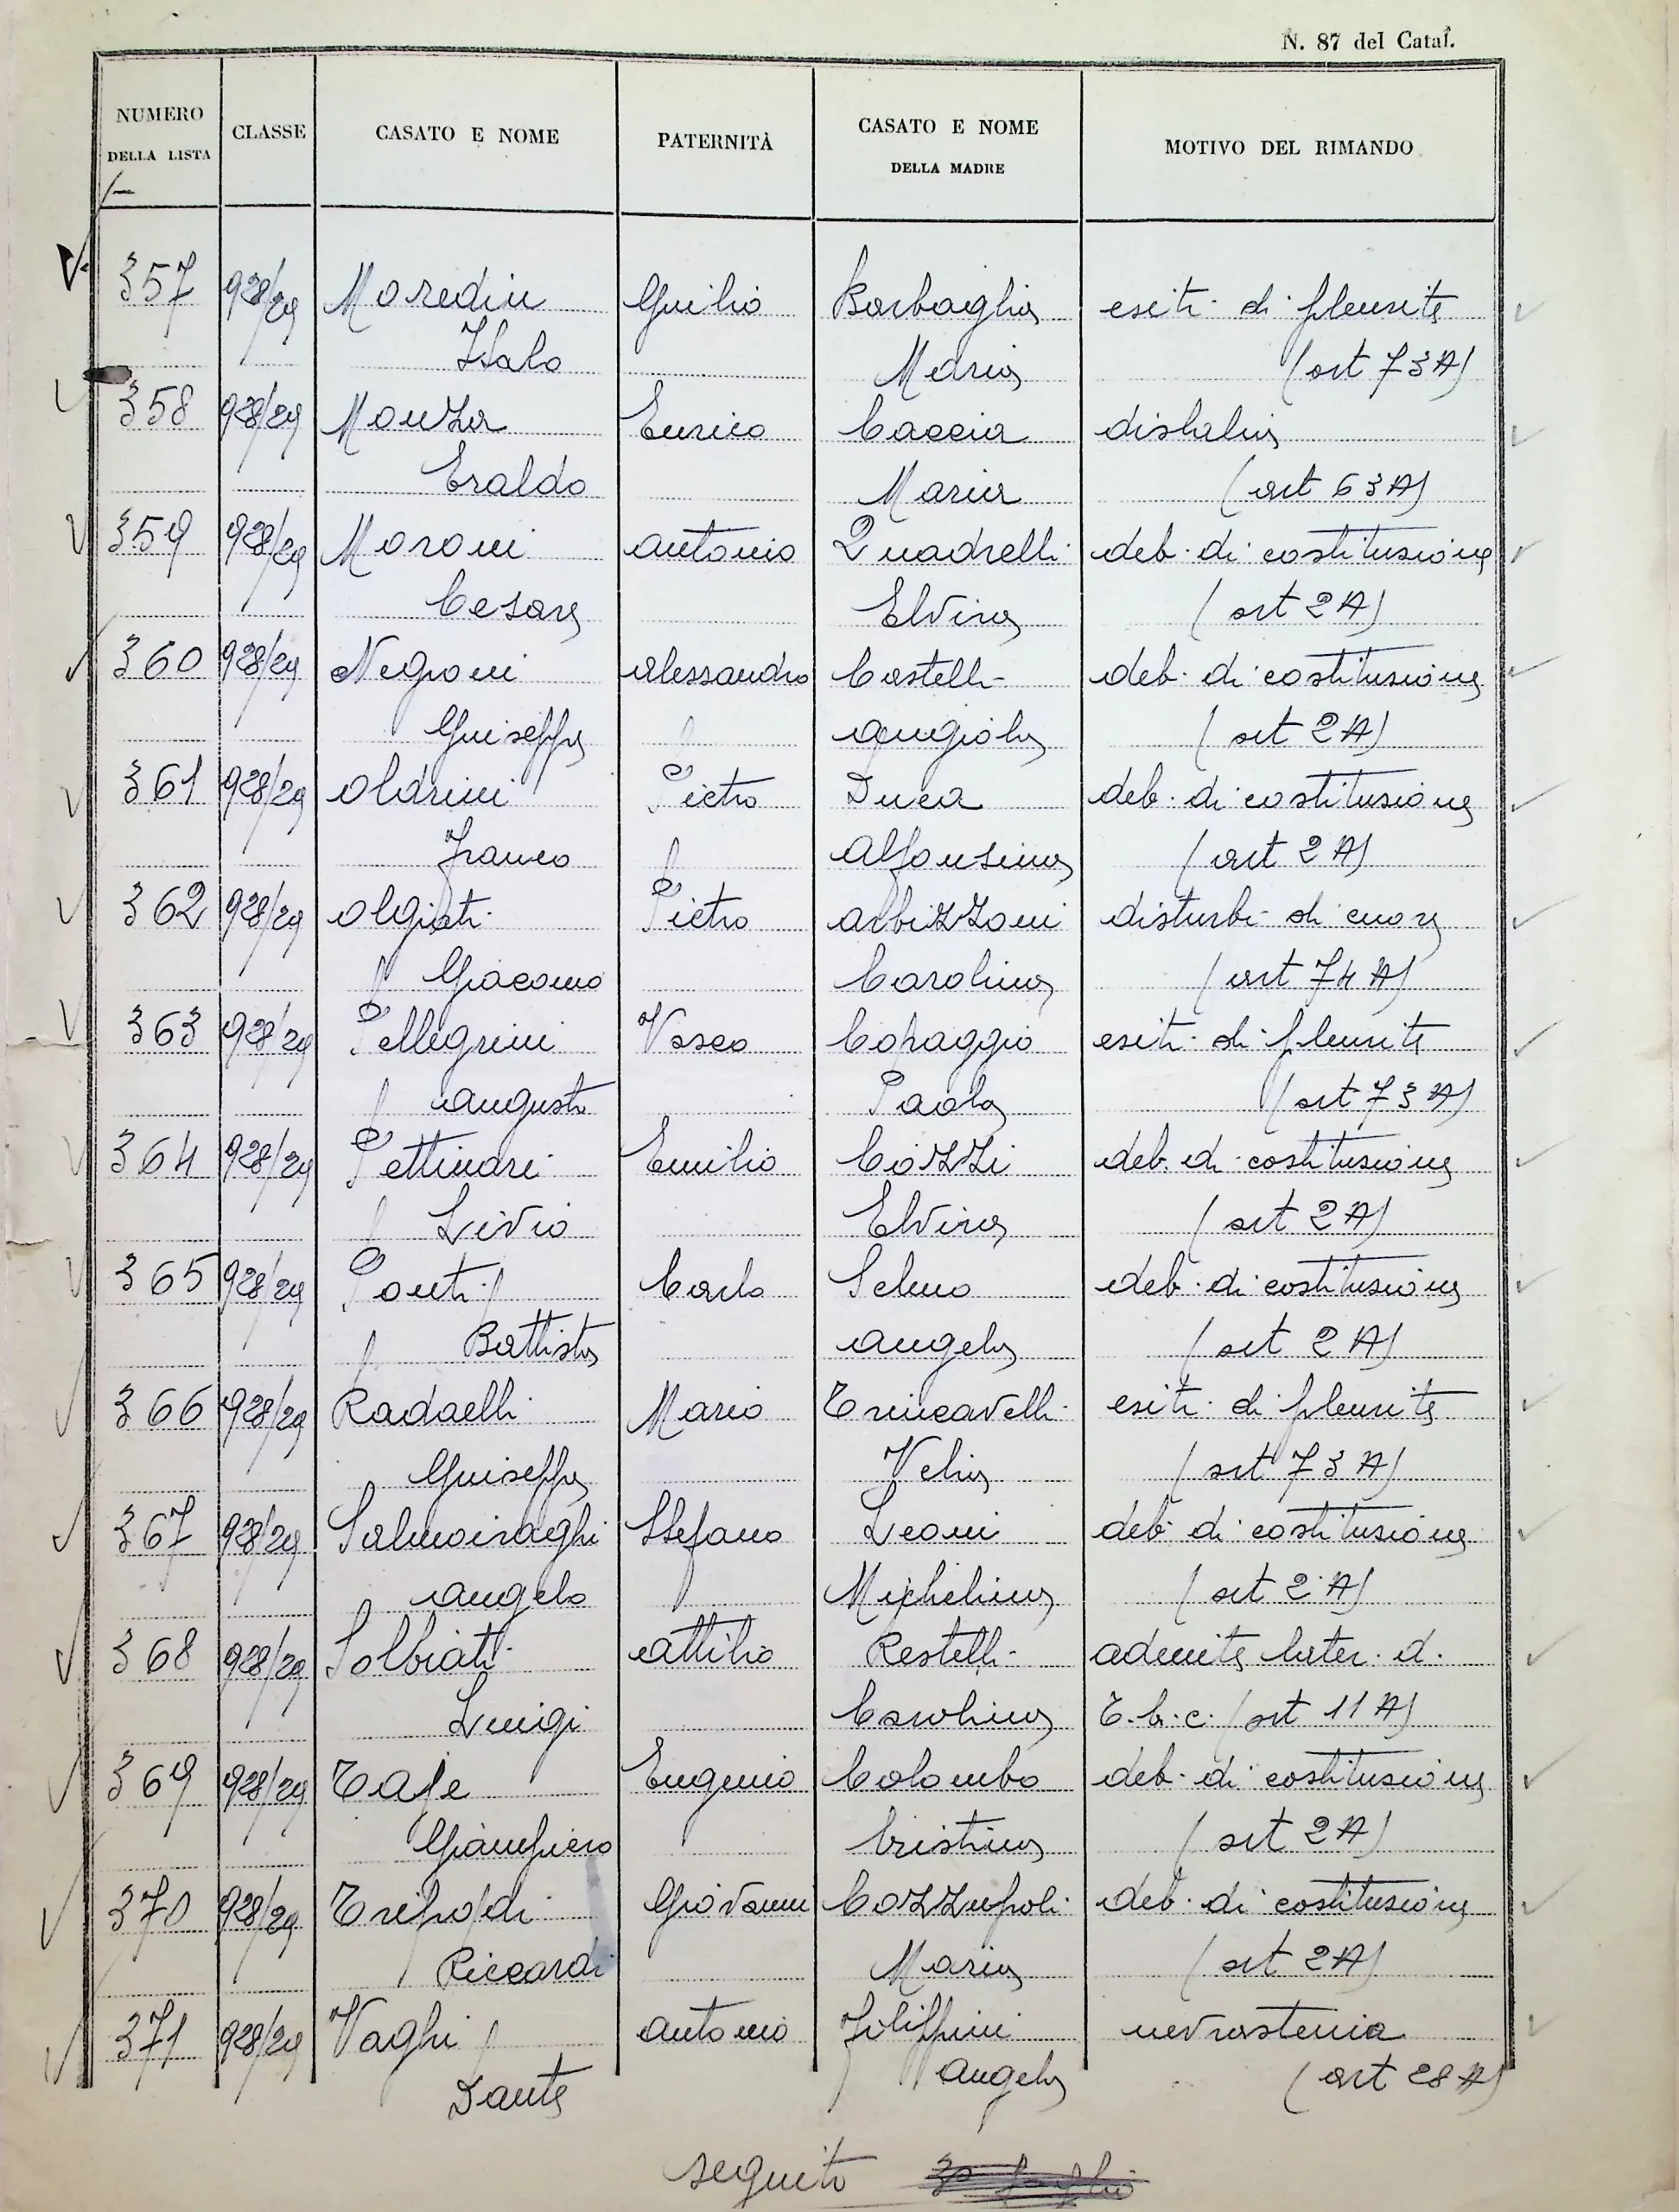 N. 87 del Catal.
NUMERO DELLA LISTA CLASSE CASATO E NOME PATERNITÀ CASATO E NOME DELLA MADRE MOTIVO DEL RIMANDO
357 928/29 Moredin Giulio Barbaglia esiti di pleurite
Italo Maria (art 73 A)
358 928/29 Monza Enrico Caccia dislalia
Eraldo Maria (art 63 A)
359 928/29 Moroni Antonio Quadrelli deb. di costituzione
Cesare Elvira (art 2 A)
360 928/29 Negroni Alessandro Castelli deb. di costituzione
Giuseppe Angiola (art 2 A)
361 928/29 Oldrini Pietro Duca deb. di costituzione
Franco Alfonsina (art 2 A)
362 928/29 Olgiati Pietro Arbizzoni disturbi di cuore
Giacomo Carolina (art 74 A)
363 928/29 Pellegrini Vasco Coraggio esiti di pleurite
Augusto Paola (art 73 A)
364 928/29 Pettinari Emilio Cozzi deb. di costituzione
Livio Elvira (art 2 A)
365 928/29 Ponti Carlo Selmo deb. di costituzione
Battista Angela (art 2 A)
366 928/29 Radaelli Mario Trincavelli esiti di pleurite
Giuseppe Velia (art 73 A)
367 928/29 Salmoiraghi Stefano Leoni deb. di costituzione
Angelo Michelina (art 2 A)
368 928/29 Solbiati Attilio Restelli adenite later. d.
Luigi Carolina T.b.c. (art 11 A)
369 928/29 Taje Eugenio Colombo deb. di costituzione
Giampiero Cristina (art 2 A)
370 928/29 Tripoldi Giovanni Cozzupoli deb. di costituzione
Riccardi Maria (art 2 A)
371 928/29 Vaghi Antonio Filippini nevrastenia
Dante Angela (art 28 A)
seguito